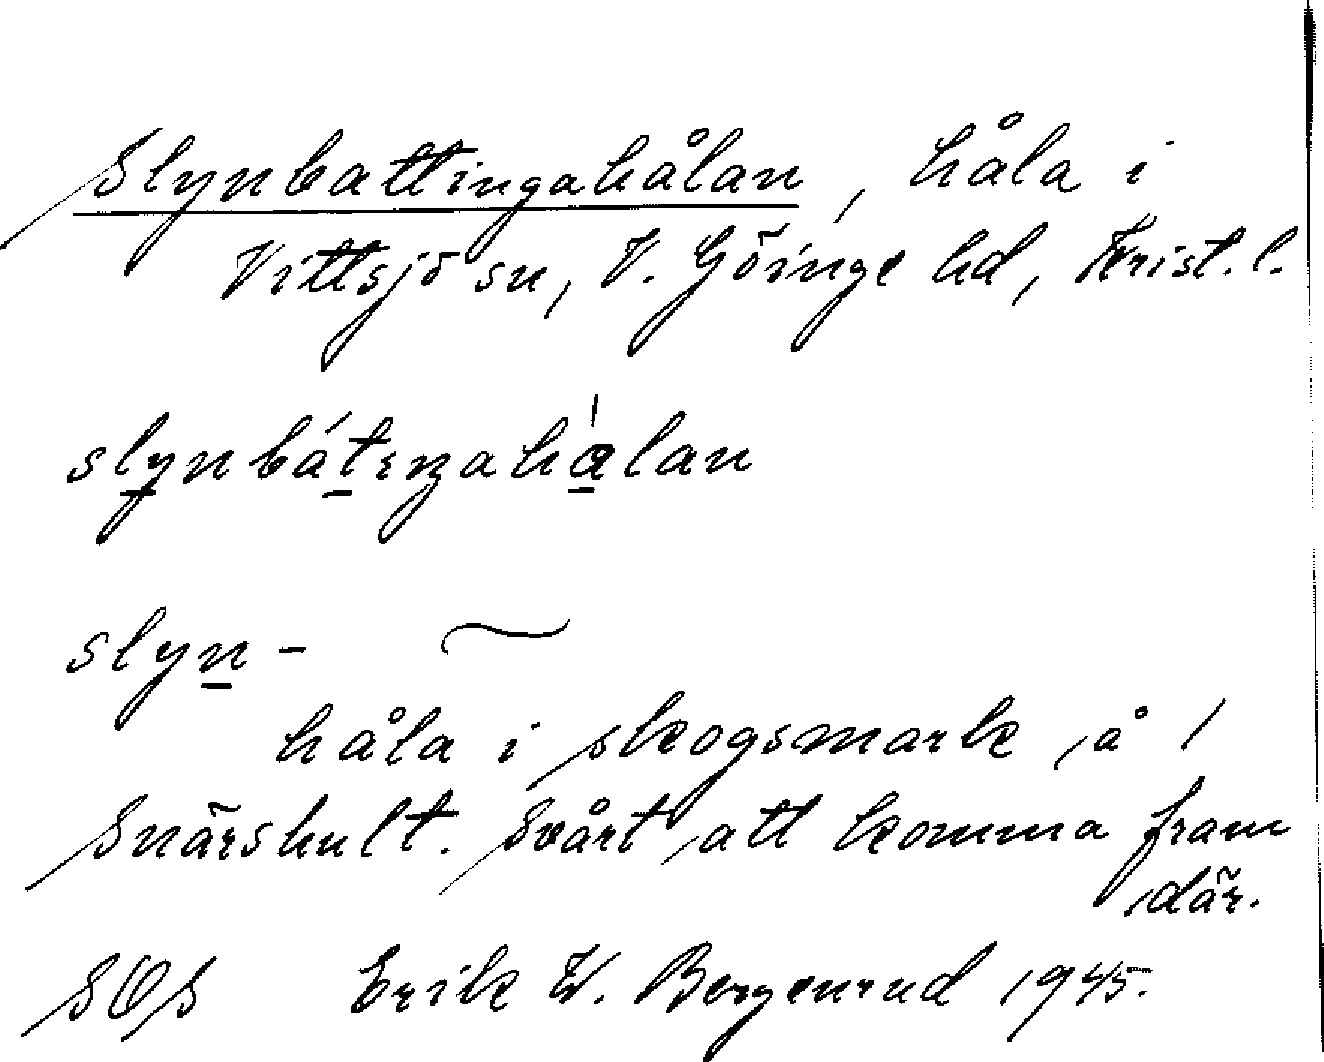 Slynbattingahålan, håla i
Vittsjö sn, V. Göinge hd, Krist. l.
slynbátıŋahàlan
slyn- ~
håla i skogsmark å
Snärshult. Svårt att komma fram
där.
SOS Erik W. Bergenrud 1945.